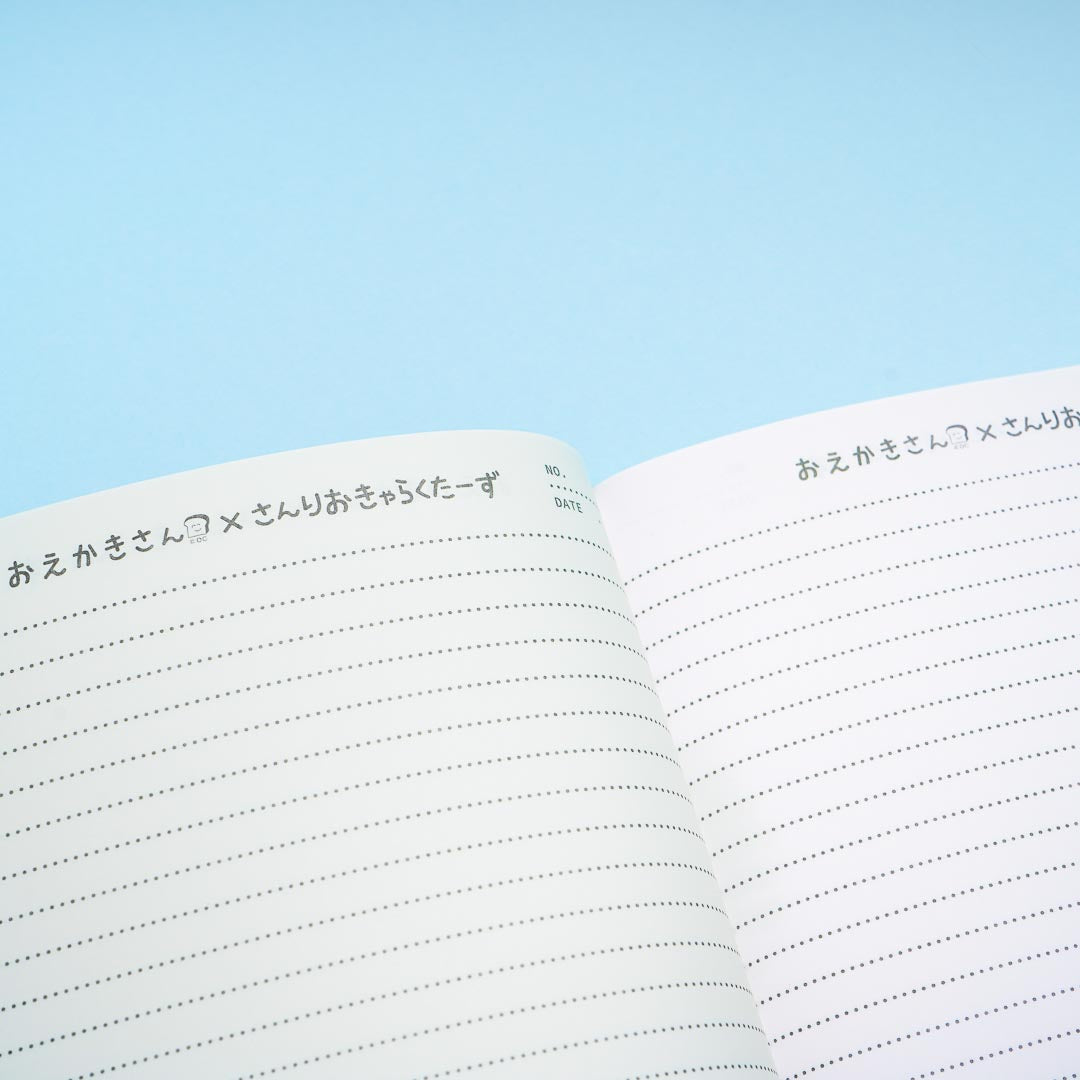 おえかきさん × さんりおきゃらくたーず
NO.
DATE
おえかきさん × さんりお